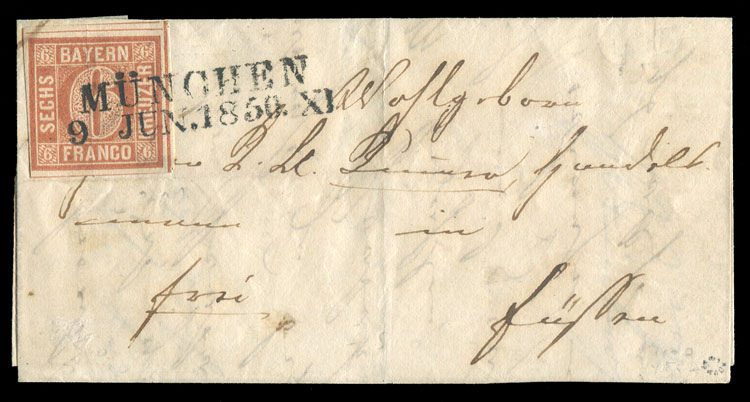 BAYERN
SECHS
KREUZER
FRANCO
6 6 6 6
6
MÜNCHEN
9 JUN. 1850. XI
Wohlgeborn
Handels
mann in
frei Füssen